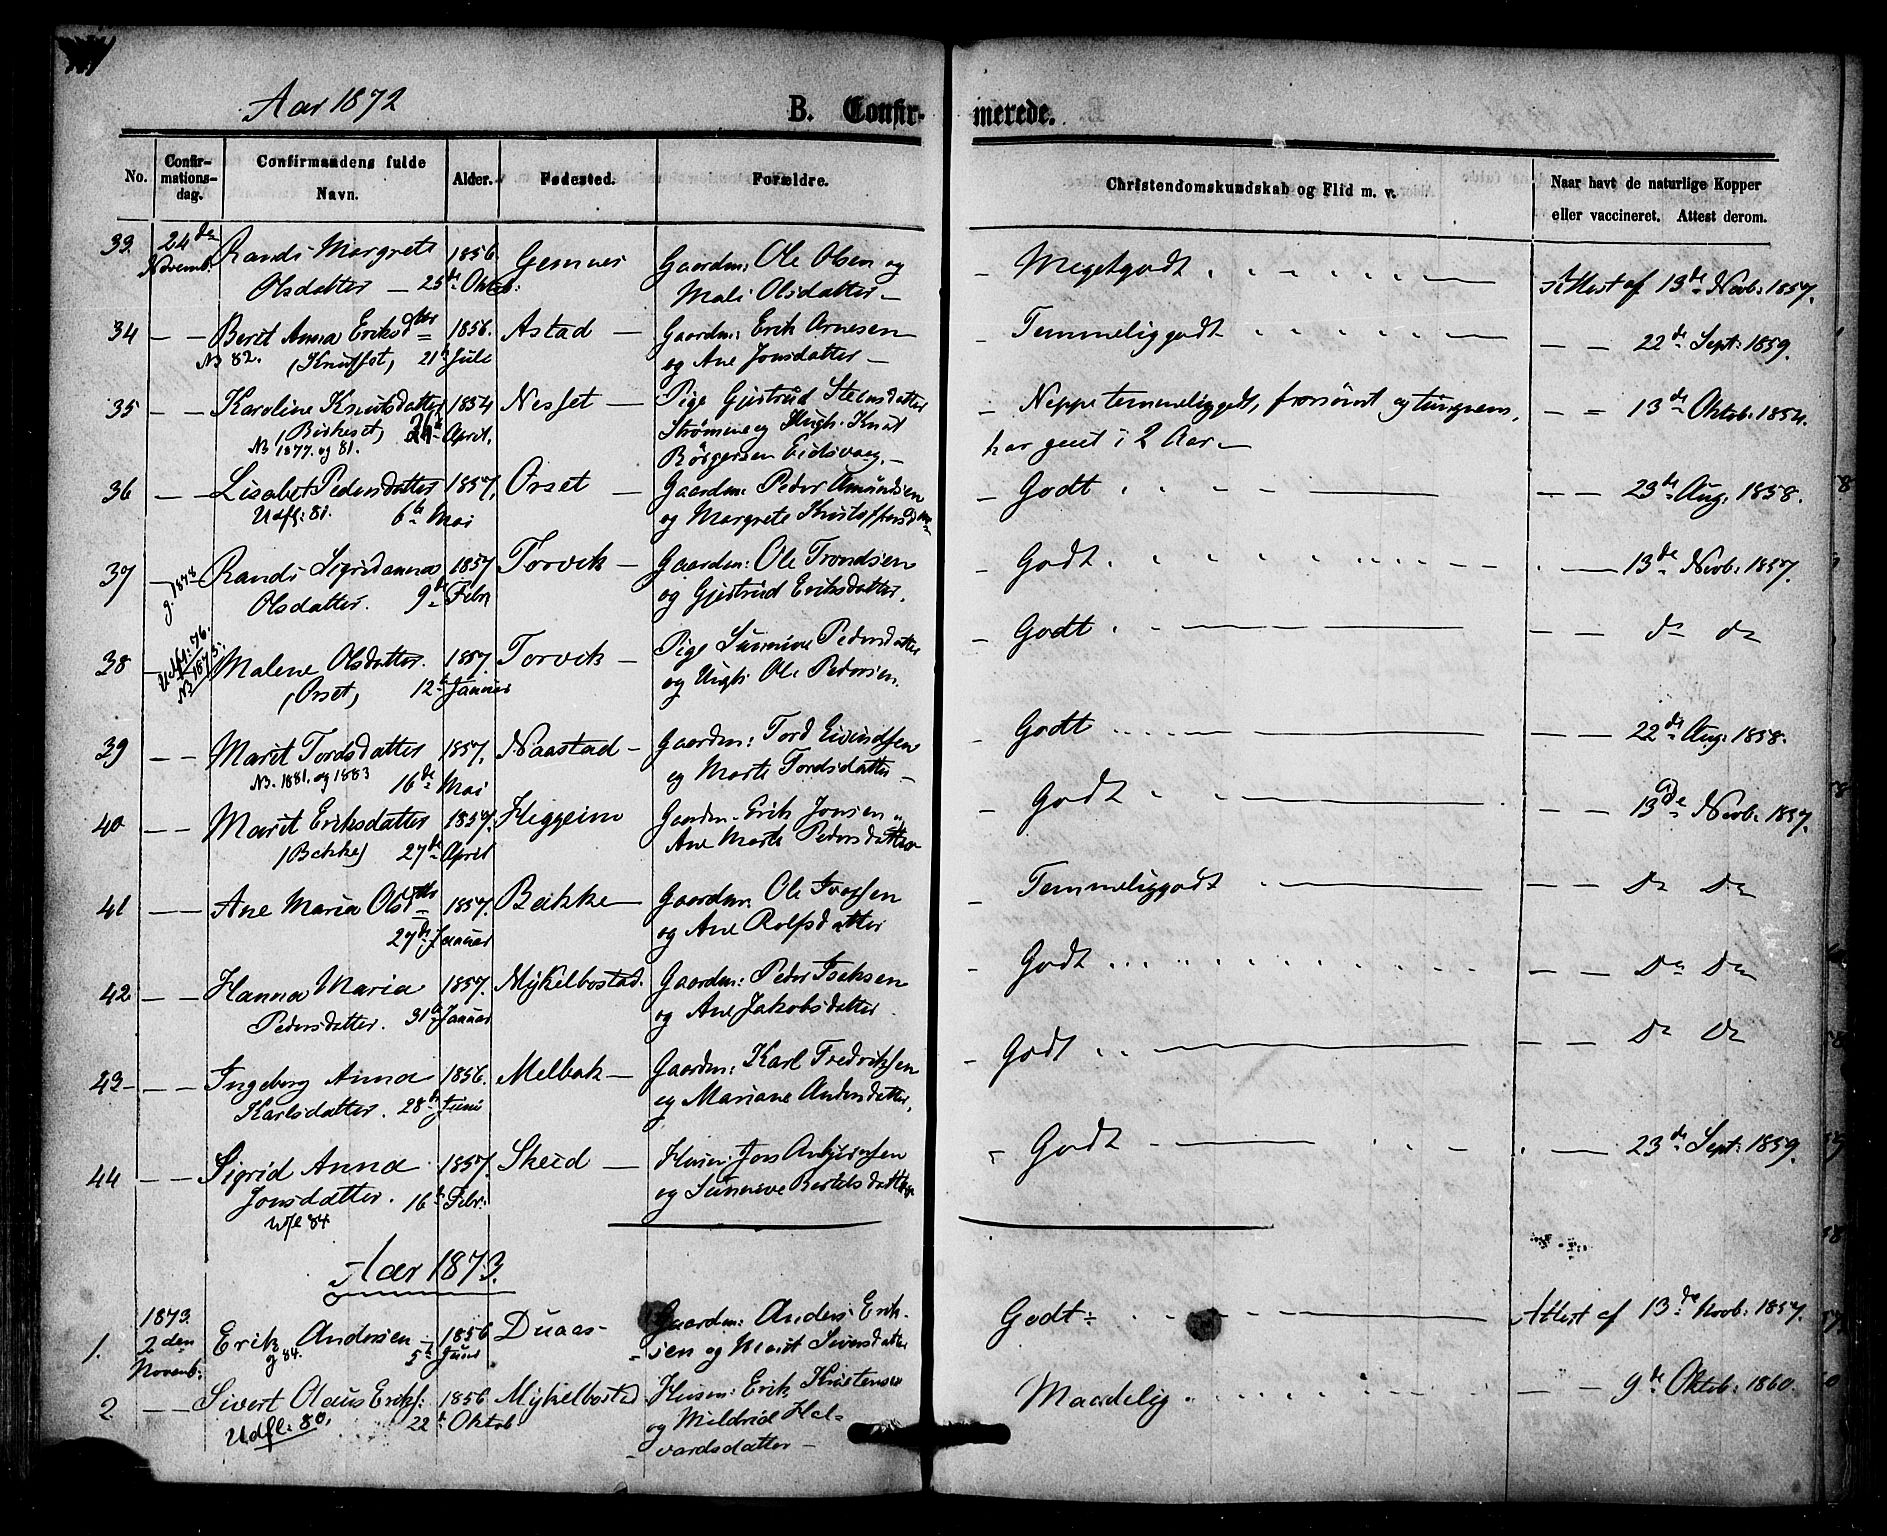 Aar 1872
B. Confirmerede.
No. Confirmationsdag. Confirmandens fulde Navn. Alder. Fødested. Forældre. Christendomskundskab og Flid m. v. Naar havt de naturlige Kopper eller vaccineret. Attest derom.
33. 24de Novemb. Randi Margrete 1856. Gemnes Gaardm: Ole Olsen og - Megetgodt Attest af 13de Novb: 1857.
Olsdatter — 25de Oktob: Mali Olsdatter —
34 — — Beret Anna Eriksdtr 1856. Astad — Gaardm: Erik Arnesen - Temmeliggodt — — 22de Sept: 1859.
NB 82. (Knutset) 21de Juli og Ane Jonsdatter —
35 — — Karoline Knutsdatter 1854 Nesset — Pige Gjertrud Steensdatter - Neppe temmeliggodt, forsømt og tungnem, — = 13de Oktob: 1854.
(Birkeset) 24de April. Strømme og Ungk. Knut har gaaet i 2 Aar. —
NB 1877. og 81. Børgersen Eidsvaag. —
36 — — Lisabet Pedersdatter 1857. Orset — Gaardm: Peder Amundsen - Godt — — 23de Aug: 1858.
Udfl: 81. 6te Mai og Margrete Kristoffersd
37 g. 1878 Randi Sigridanna 1857 Torvik — Gaardm: Ole Trondsen - Godt. — 13de Novb: 1857.
Olsdatter. 9de Febr og Gjertrud Eriksdatter.
38 Udfl: 76. NB 1875. Malene Olsdatter. 1857. Torvik — Pige Sunnive Pedersdatter - Godt — — do do
(Orset) 12te Januar og Ungk. Ole Pedersen.
39 — — Marit Tordsdatter 1857. Naastad — Gaardm: Tord Eivindsen - Godt — — 22de Aug: 1858.
NB. 1881. og 1883 16de Mai og Marte Tordsdatter —
40 — — Marit Eriksdatter 1857. Heggeim Gaardm. Erik Jonsen og - Godt — — 13de Novb: 1857.
(Bakke) 27de April Ane Marte Pedersdatter
41 — — Ane Maria Olsdtr 1857. Bakke — Gaardm. Ole Iversen - Temmeliggodt — — Do Do
27de Januar og Ane Rolfsdatter
42 — — Hanna Maria 1857. Mykelbostad. Gaardm: Peder Isaksen - Godt — — Do Do
Pedersdatter. 31te Januar og Ane Jakobsdatter.
43 — — Ingeborg Anna 1856. Melbak — Gaardm: Karl Fredriksen - Godt — — Do Do
Karlsdatter. 28de Juni og Mariane Andersdatter,
44 — — Sigrid Anna 1857. Skeid — Husm: Jon Asbjørnsen - Godt — 23de Sept: 1859.
Jonsdatter. 16de Febr. og Sunnive Bertelsdatter
Ufl 84
Aar 1873.
1. 1873. 2den Novemb: Erik Andersen — 1856 Duaas - Gaardm: Anders Erik- Godt: Attest af 13de Novb: 1857.
g 84. 5te Juni sen og Marit Sivertsdatter
2 — — Sivert Olaus Eriks: 1856 Mykelbostad Husm: Erik Kristensen Maadelig — — 9de Oktob: 1860.
Udfl: 80. 22de Oktob og Mildrid Hal-
vardsdatter —